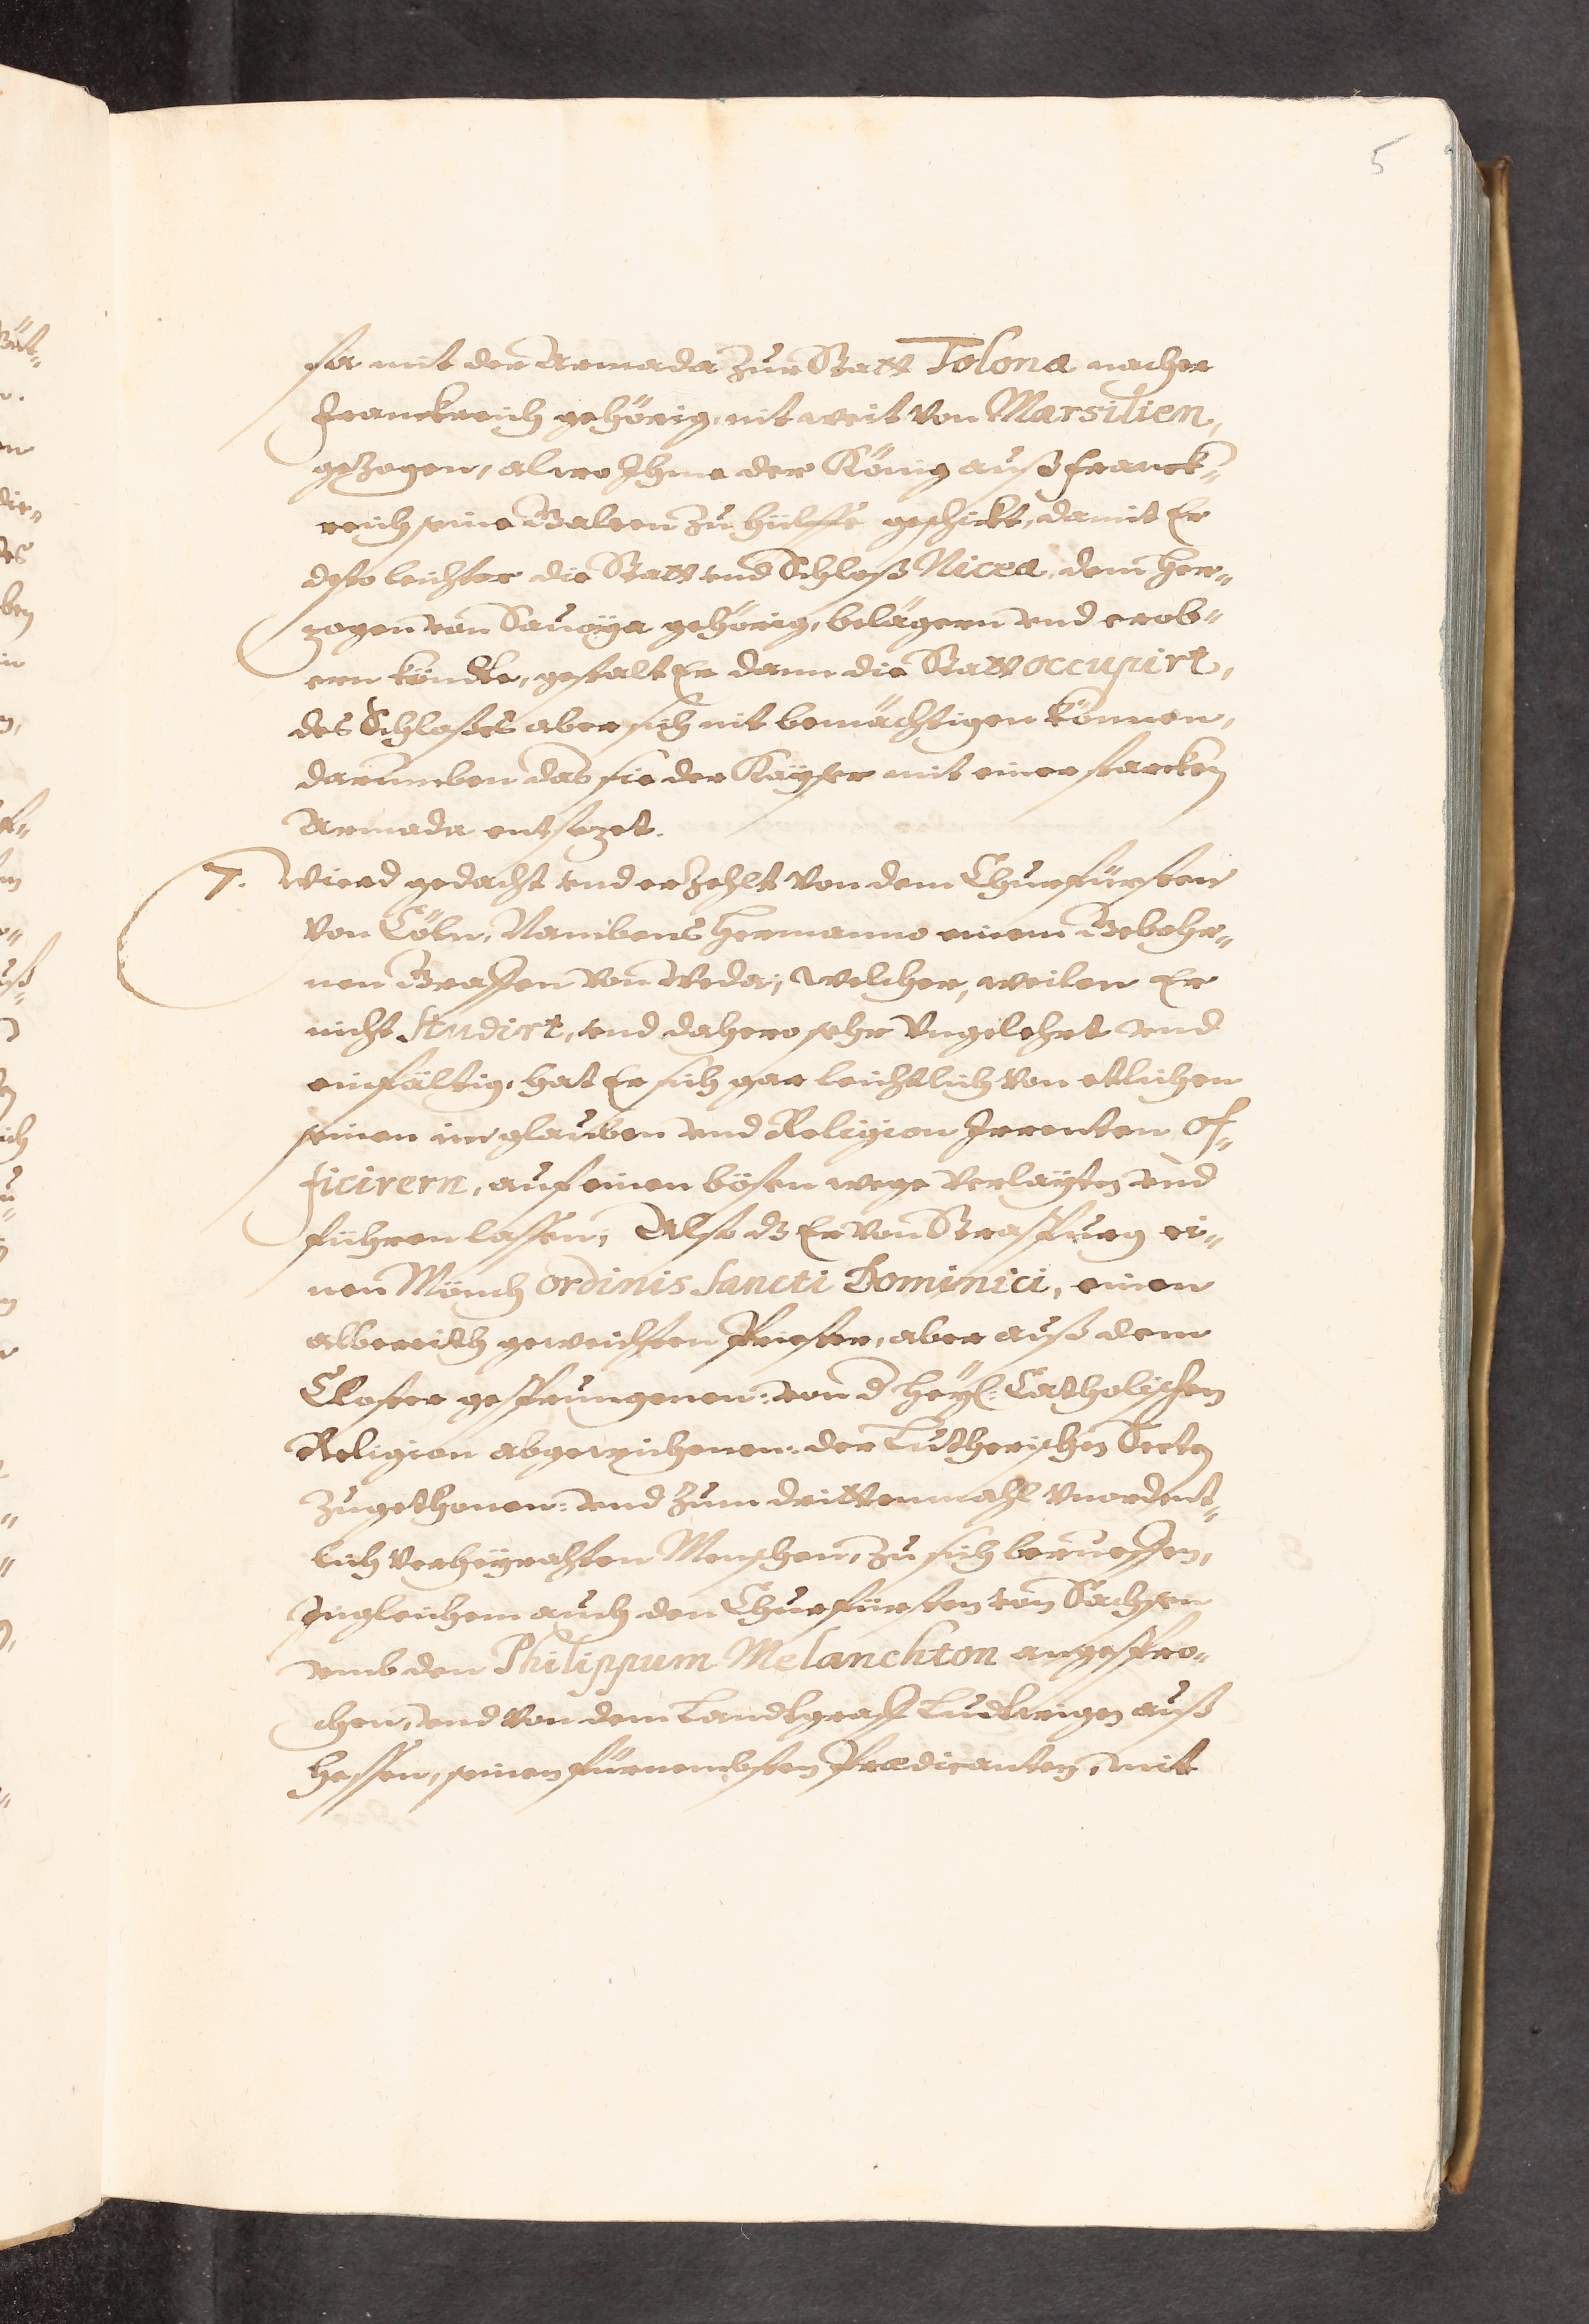 5
sa mit der Armada zur Statt Tolona nacher
Franckreich gehörig, nit weit von Marsilien,
gezogen, alwo Ihme der König auß Franck-
reich seine Galeen zu hülffe geschickt, damit Er
desto leichter die Statt vnd Schloß Nicea, dem Her-
zogen von Sauoÿa gehörig, belägern vnd erob-
ern köndte, gestalt Er dann die Statt occupirt,
des Schloßes aber sich nit bemächtigen können,
darumben das sie der Kaÿser mit einer starcken
Armada entsezet.
7. Wierd gedacht vnd erzehlt von dem Churfürsten
von Cöln, Nambens Hermanno einem Gebohr-
nen Graffen von Weda; welcher, weilen Er
nicht Studirt, vnd dahero sehr Vngelehrt vnd
einfältig, hat Er sich gar leichtlich von etlichen
seinen im glauben vnd Religion Irrenten of-
ficirern, auf einen bösen wege verlaÿten vnd
führen lassen; Also dz Er von Straßburg ei-
nen Mönch ordinis Sancti Dominici, einen
albereith geweichten Priester, aber auß dem
Closter gesprungenen: von d Heÿl: Catholischen
Religion abgewichenen: der Lutherischen Secten
zugethonen: vnd zum drittenmahl vnordent-
lich verheÿrahten Menschen, zu sich berueffen,
Ingleichem auch den Churfürsten von Sachsen
vmb den Philippum Melanchton angespro-
chen, vnd von dem Landtgraff Ludtwigen auß
Hessen, seinen fürnembsten Prædicanten, mit